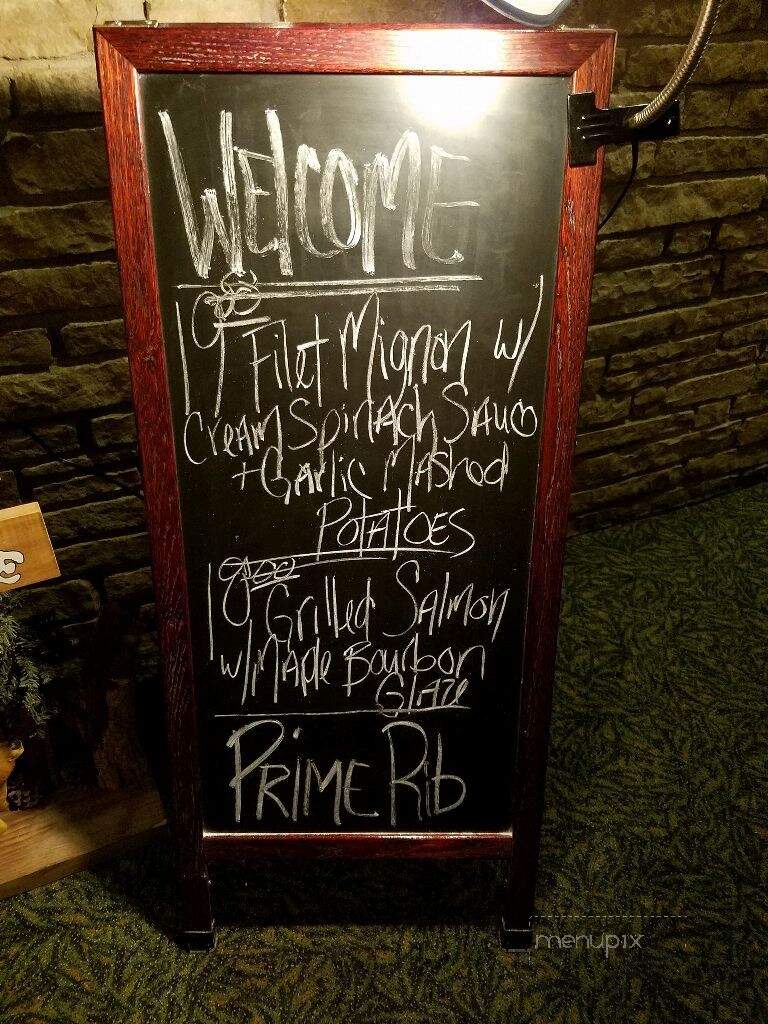 WElCOME
19.00 Filet Mignon w/
CreAm SpinAch SAuce
+ GArlic MAshed
POTATOES
18.00 Grilled SAlmon
w/ MAple Bourbon
GlAze
PRIME Rib
menupix